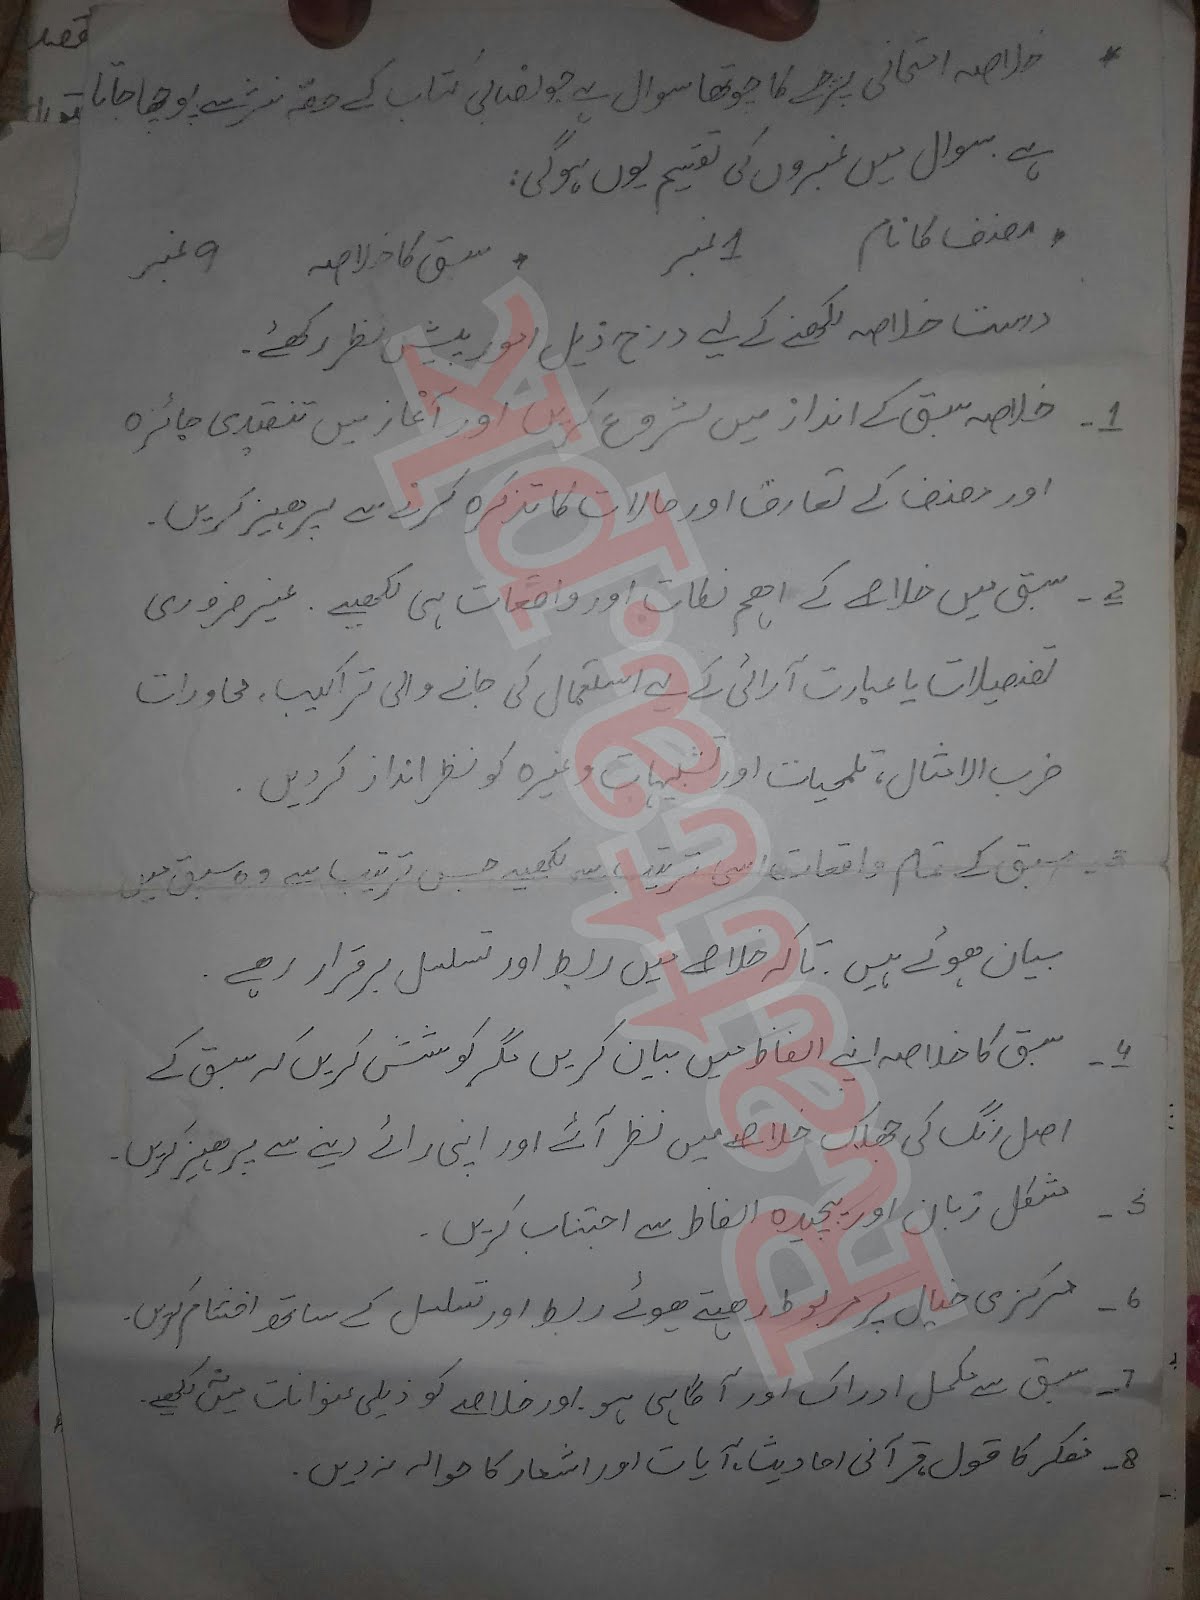 * خلاصہ امتحانی پرچے کا چوتھا سوال ہے جو نصابی کتاب کے حصہ نثر سے پوچھا جاتا
ہے۔ سوال میں نمبروں کی تقسیم یوں ہوگی:
* مصنف کا نام 1 نمبر * سبق کا خلاصہ 9 نمبر
درست خلاصہ لکھنے کے لیے درج ذیل امور پیش نظر رکھئے۔
1- خلاصہ سبق کے انداز میں شروع کریں اور آغاز میں تنقیدی جائزہ
اور مصنف کے تعارف اور حالات کا تذکرہ کرنے سے پرھیز کریں۔
2- سبق میں خلاصے کے اھم نکات اور واقعات ہی لکھیے۔ غیر ضروری
تفصیلات یا عبارت آرائی کے لیے استعمال کی جانے والی تراکیب، محاورات
ضرب الامثال، تلمیحات اور تشبیہات وغیرہ کو نظر انداز کردیں۔
3- سبق کے تمام واقعات اسی ترتیب سے لکھیے جس ترتیب سے وہ سبق میں
بیان ھوئے ہیں۔ تاکہ خلاصے میں ربط اور تسلسل برقرار رھے۔
4- سبق کا خلاصہ اپنے الفاظ میں بیان کریں مگر کوشش کریں کہ سبق کے
اصل رنگ کی جھلک خلاصے میں نظر آئے اور اپنی رائے دینے سے پرھیز کریں۔
5- مشکل زبان اور پیچیدہ الفاظ سے اجتناب کریں۔
6- مرکزی خیال پر مربوط رھتے ھوئے ربط اور تسلسل کے ساتھ اختتام کریں۔
7- سبق سے مکمل ادراک اور آگاہی ہو۔ اور خلاصے کو ذیلی عنوانات میں لکھیے۔
8- مفکر کا قول، قرآنی احادیث، آیات اور اشعار کا حوالہ نہ دیں۔
Rasheedriaz.pk